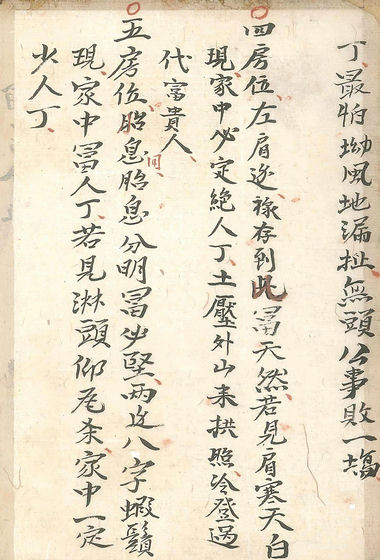 丁最怕坳風地漏扯無頭公事敗一塲
四房位左肩逆祿存到此富天然若見肩寒天白
現家中必定絕人丁土壓外山来拱照冷登過
代富貴人
五房位胎息胎息分明冨必堅兩边八字蝦鬚
現家中冨人丁若見淋頭仰尾杀家中一定
少人丁